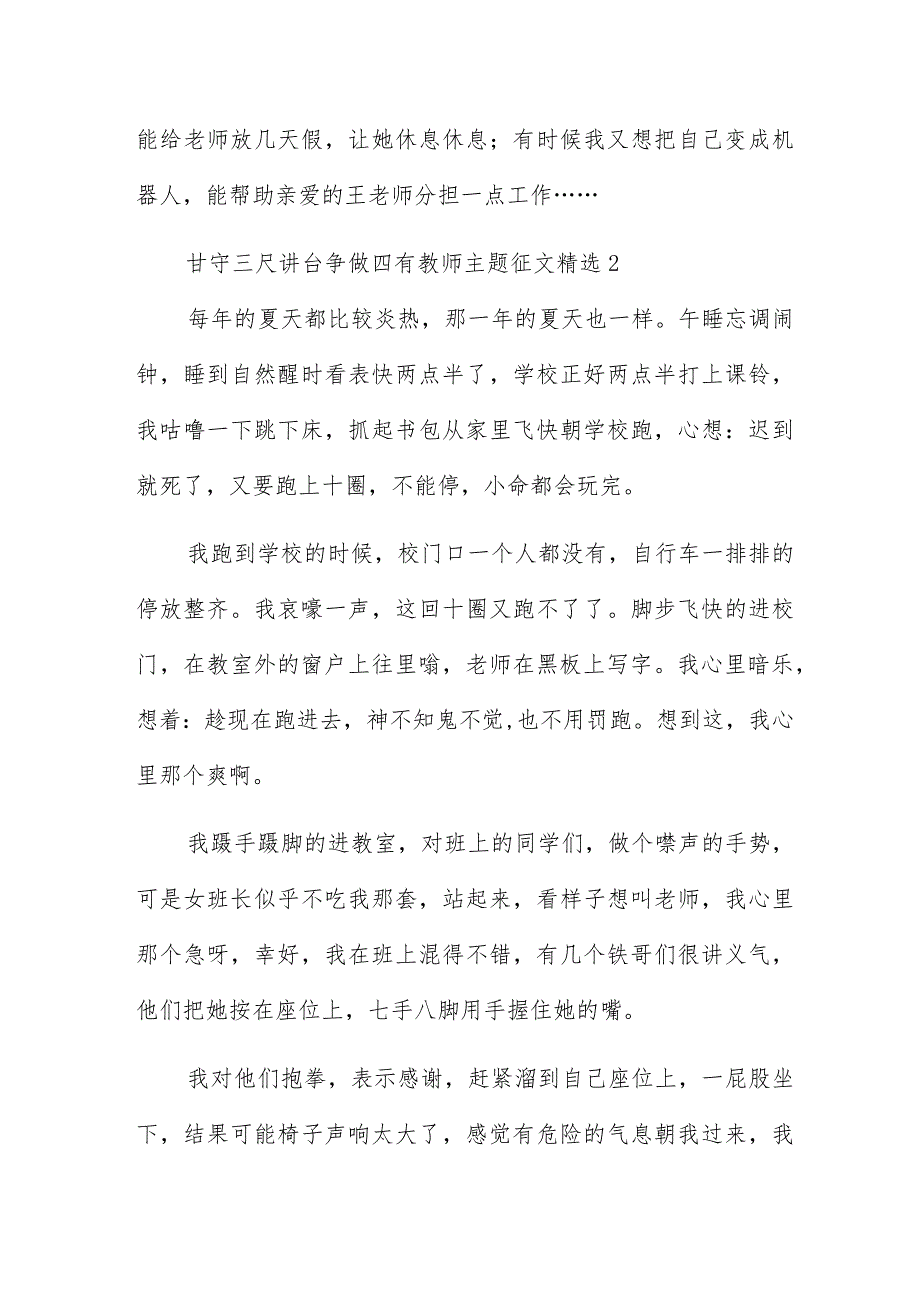 能给老师放几天假，让她休息休息；有时候我又想把自己变成机
器人，能帮助亲爱的王老师分担一点工作……
甘守三尺讲台争做四有教师主题征文精选2
每年的夏天都比较炎热，那一年的夏天也一样。午睡忘调闹
钟，睡到自然醒时看表快两点半了，学校正好两点半打上课铃，
我咕噜一下跳下床，抓起书包从家里飞快朝学校跑，心想：迟到
就死了，又要跑上十圈，不能停，小命都会玩完。
我跑到学校的时候，校门口一个人都没有，自行车一排排的
停放整齐。我哀嚎一声，这回十圈又跑不了了。脚步飞快的进校
门，在教室外的窗户上往里嗡，老师在黑板上写字。我心里暗乐，
想着：趁现在跑进去，神不知鬼不觉,也不用罚跑。想到这，我心
里那个爽啊。
我蹑手蹑脚的进教室，对班上的同学们，做个噤声的手势，
可是女班长似乎不吃我那套，站起来，看样子想叫老师，我心里
那个急呀，幸好，我在班上混得不错，有几个铁哥们很讲义气，
他们把她按在座位上，七手八脚用手握住她的嘴。
我对他们抱拳，表示感谢，赶紧溜到自己座位上，一屁股坐
下，结果可能椅子声响太大了，感觉有危险的气息朝我过来，我